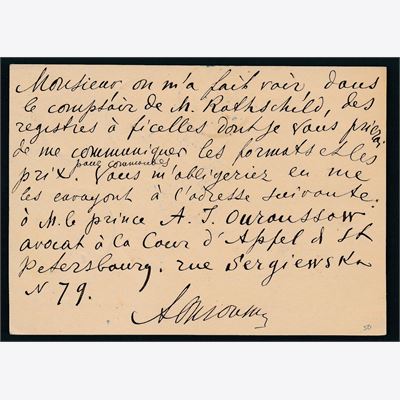 Monsieur on m'a fait voir, dans
le comptoir de M. Rothschild, des
registres à ficelles dont je vous prierai
de me communiquer les formats et les
pour commandes
prix. Vous m'obligeriez en me
les envoyant à l'adresse suivante.
à M. le prince A. I. Ouroussow
avocat à la Cour d'Appel d St
Petersbourg. rue Sergiewska
N 79.
AOuroussow